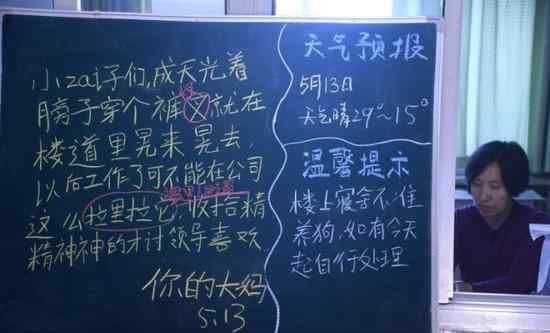 小zai子们,成天光着
膀子穿个裤叉就在
楼道里晃来晃去,
以后工作了可不能在公司
这么拉里拉它,收拾精
精神神的才讨领导喜欢
你的大妈
5.13
天气预报
5月13日
天气晴29°~15°
温馨提示
楼上寝舍不准
养狗,如有今天
起自行处理